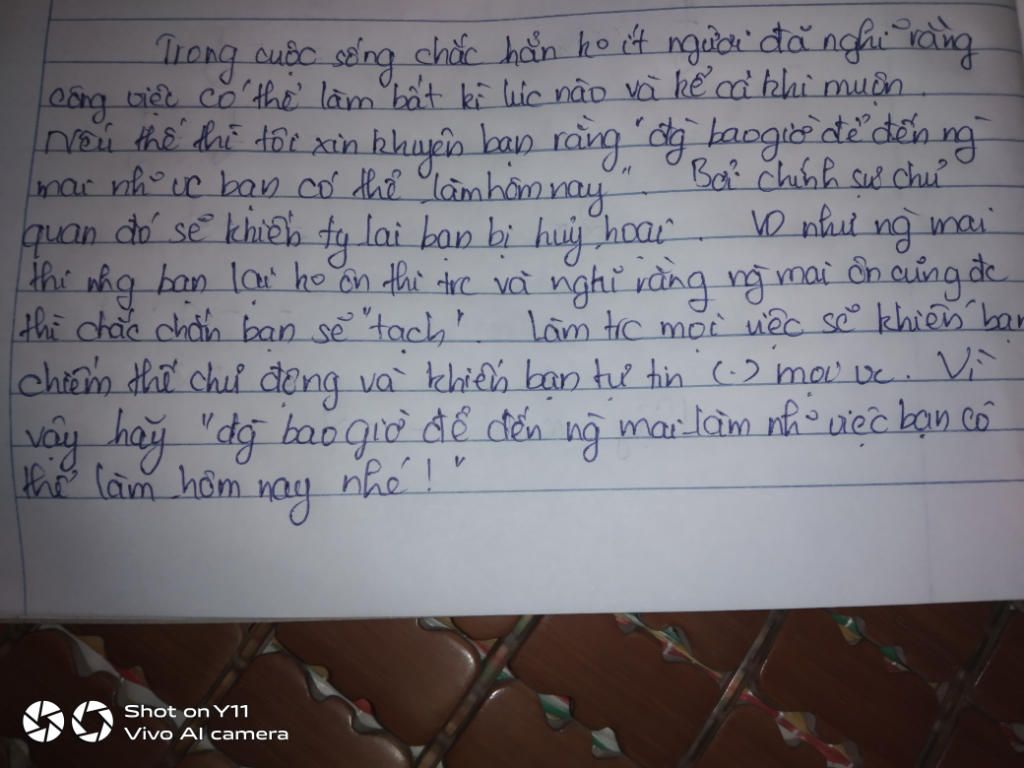 Trong cuộc sống chắc hẳn ho ít người đã nghĩ rằng
công việc có thể làm bất kì lúc nào và kể cả khi muộn.
Nếu thế thì tôi xin khuyên bạn rằng "đg bao giờ để đến ng
mai nh~ vc bạn có thể làm hôm nay". Bởi chính sự chủ
quan đó sẽ khiến tg lai bạn bị huỷ hoại. VD như ng mai
thi nhg bạn lại ho ôn thi trc và nghĩ rằng ng mai ôn cũng đc
thì chắc chắn bạn sẽ "tạch". Làm trc mọi việc sẽ khiến bạn
chiếm thế chủ động và khiến bạn tự tin (.) mọi vc. Vì
vậy hãy "đg bao giờ để đến ng mai làm nh~ việc bạn có
thể làm hôm nay nhé!"
Shot on Y11
Vivo AI camera